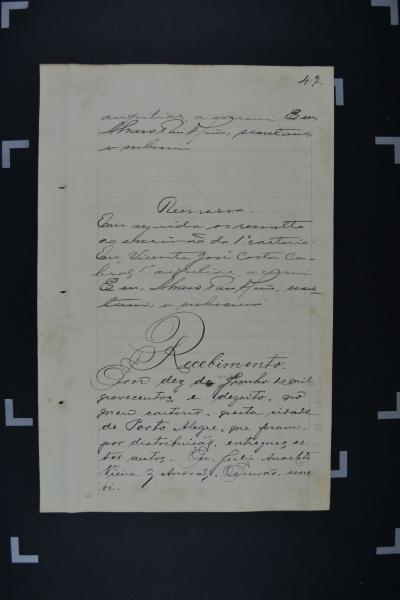 47.
auxiliar, o escrevi. E eu,
escrivão,
o subscrevi
Remessa.
Em seguida os remetto
ao escrivão do 1º cartorio.
Eu, Vicente José Costa Ca-
bral, 1º auxiliar, o escrevi
E eu, escri-
vão, o subscrevi
Recebimento.
Aos dez de Junho de mil
novecentos e dezoito, no
meu cartorio, nesta cidade
de Porto Alegre, me foram,
por distribuição, entregues es-
tes autos. Eu, Julio
Vieira, Escrivão, escre-
vi.